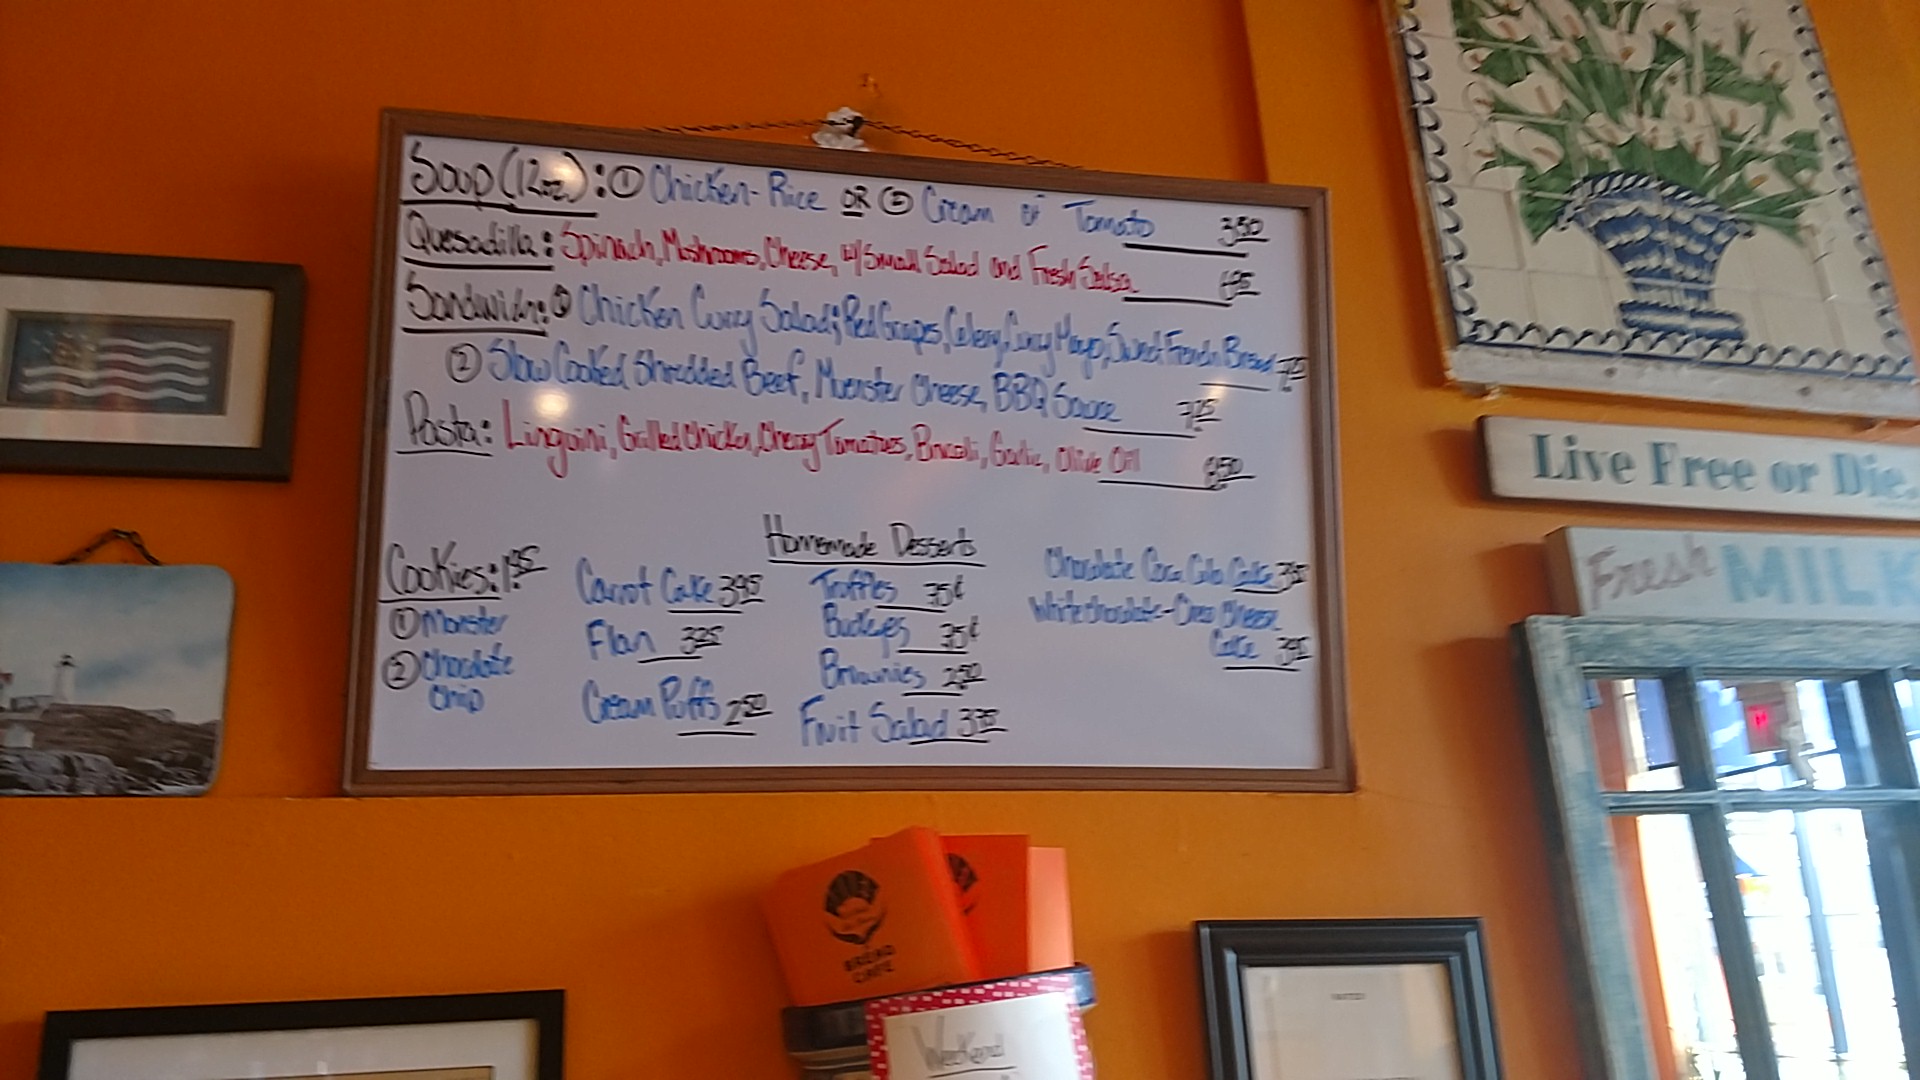 Soup (12oz): ① Chicken-Rice OR ② Cream of Tomato 3.50
Quesadilla: Spinach, Mushrooms, Cheese, w/Small Salad and Fresh Salsa 6.95
Sandwich: ① Chicken Curry Salad; Red Grapes, Celery, Curry Mayo, Sweet French Bread
② Slow Cooked Shredded Beef, Muenster Cheese, BBQ Sauce 7.25
Pasta: Linguini, Grilled Chicken, Cherry Tomatoes, Brocoli, Garlic, Olive Oil
Homemade Desserts
Cookies:
① Monster
② Chocolate
Chip
Carrot Cake 3.95
Flan 3.25
Cream Puffs 2.50
Truffles 75¢
Buckeyes 75¢
Brownies 2.50
Fruit Salad
Chocolate Coca Cola Cake
White Chocolate-Oreo Cheese
Cake 3.95
Live Free or Die.
Fresh MILK
BREAD
CAFE
Weekend